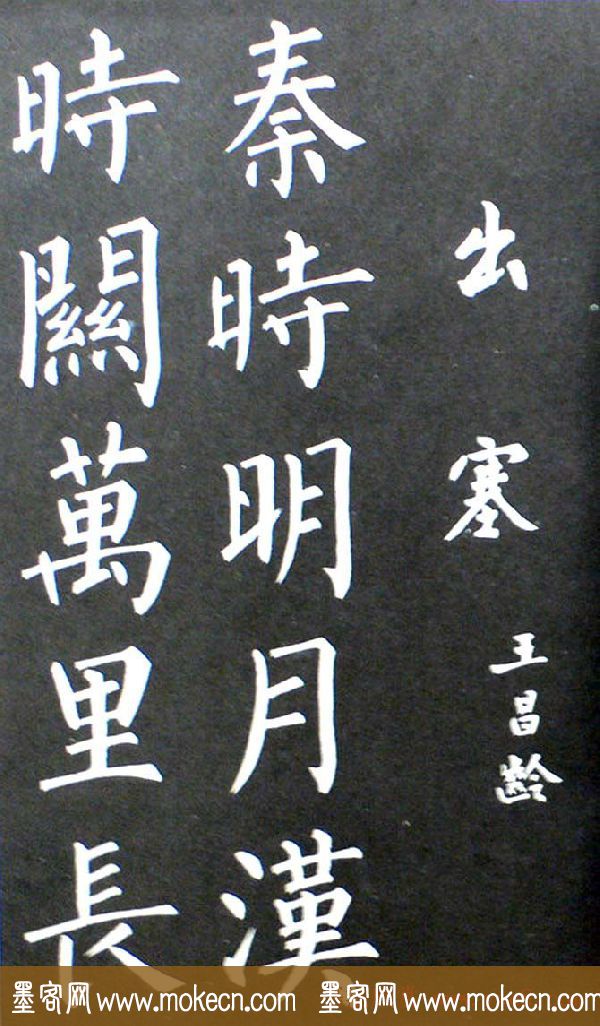 出塞
王昌齡
秦時明月漢
時關萬里長
墨客网 www.mokecn.com 墨客网 www.mokecn.com